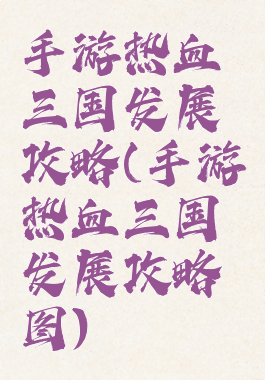 手游热血
三国发展
攻略(手游
热血三国
发展攻略
图)